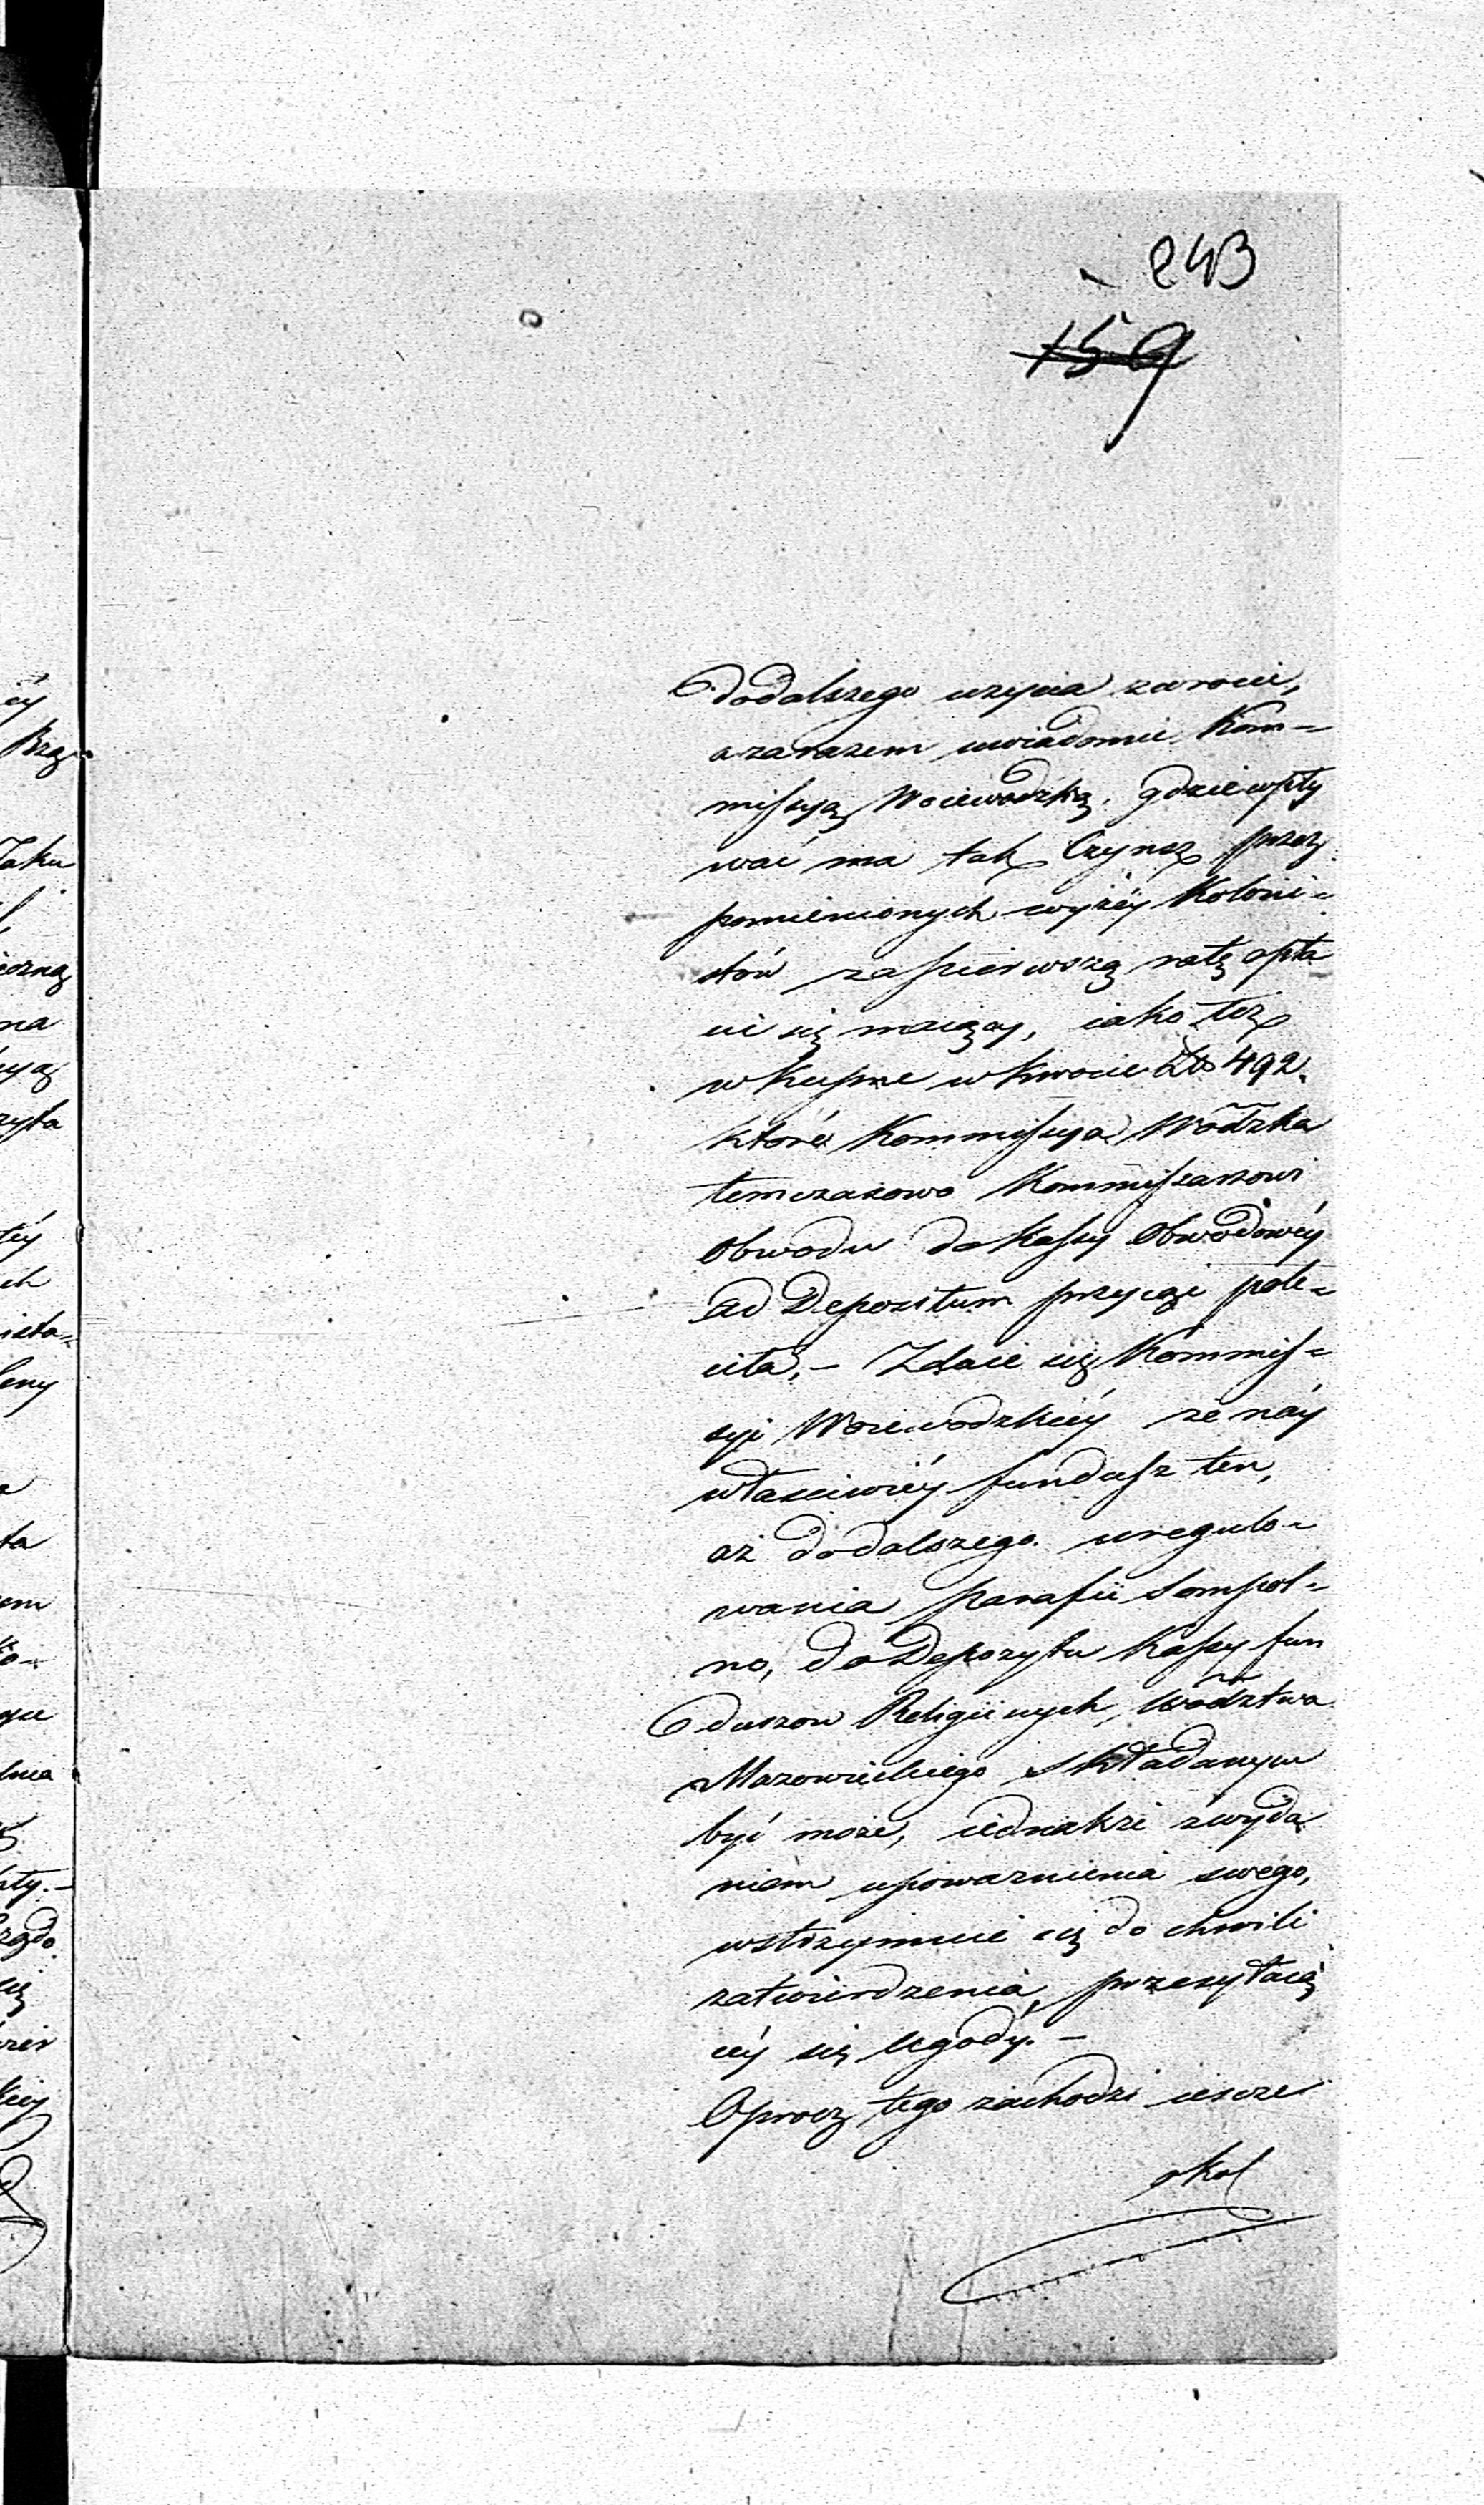 243
159
do dalszego użycia zwrocić,
a zarazem uwiadomić Kom=
missyą Woiewodzką, gdzie wpły
wać ma tak Czynsz przez
pomienionych wyżéy Koloni=
stów za pierwszą ratę opła
cić się maiący, iako też
wkupne w kwocie Zł 492.
które Kommissya Wodzka
temczasowo Kommissarzowi
Obwodu do Kassy Obwodowéy
ad Depositum przyiąć pole=
ciła, – Zdaie się Kommis=
syi Woiewodzkiéy że náy
właściwiéy fundusz ten,
aż do dalszego uregulo=
wania Parafii Sompol=
no, do Depozytu Kassy fun
duszow Religiinych, Wodztwa
Mazowieckiego składanym
być może, iednakże z wyda
niem upoważnienia swego,
wstrzymuie się do chwili
zatwierdzenia przesyłaią
céy się Ugody. –
Oprocz tego zachodzi ieszcze
okol